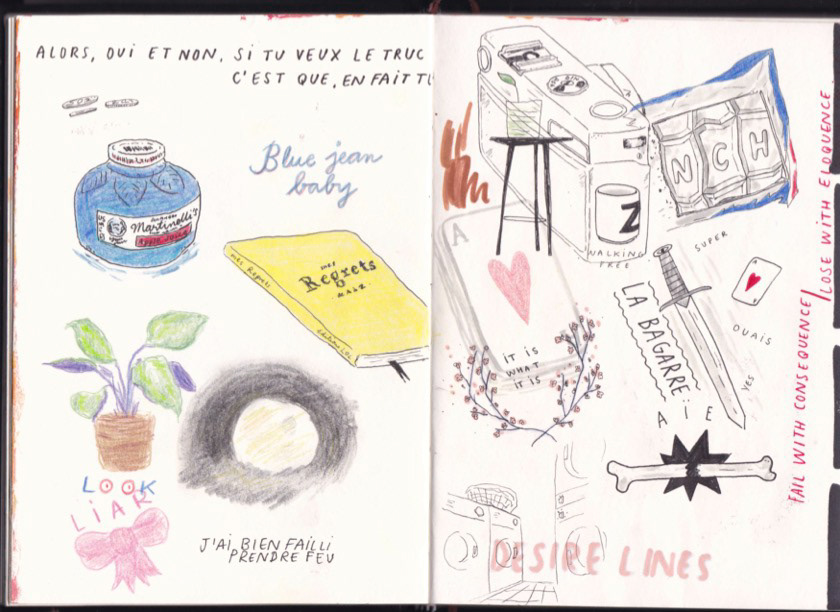 ALORS, OUI ET NON, SI TU VEUX LE TRUC
C'EST QUE, EN FAIT TU
Blue jean
baby
Martinelli's
Apple Juice
mes Regrets
mes
Regrets
MAX
LOOK
LIAR
J'AI BIEN FAILLI
PRENDRE FEU
N C H
Z
WALKING
FREE
A
IT IS
WHAT
IT IS
SUPER
LA BAGARRE
OUAIS
YES
AÏE
DESIRE LINES
FAIL WITH CONSEQUENCE/LOSE WITH ELOQUENCE